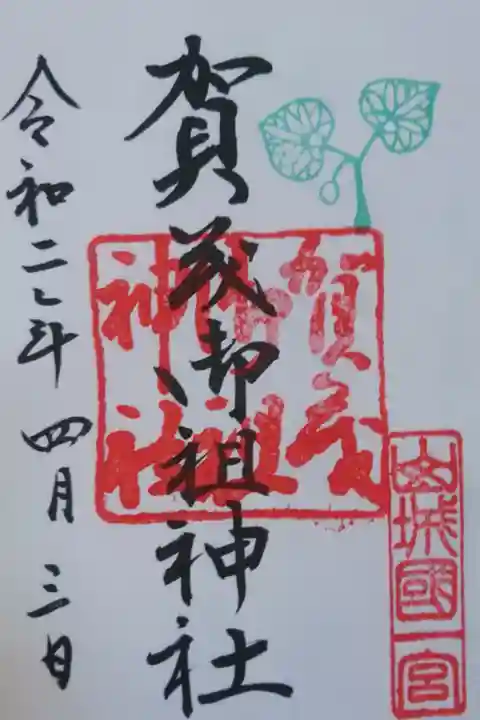 山城國一宮
賀茂
御祖
神社
賀茂御祖神社
令和二年四月三日